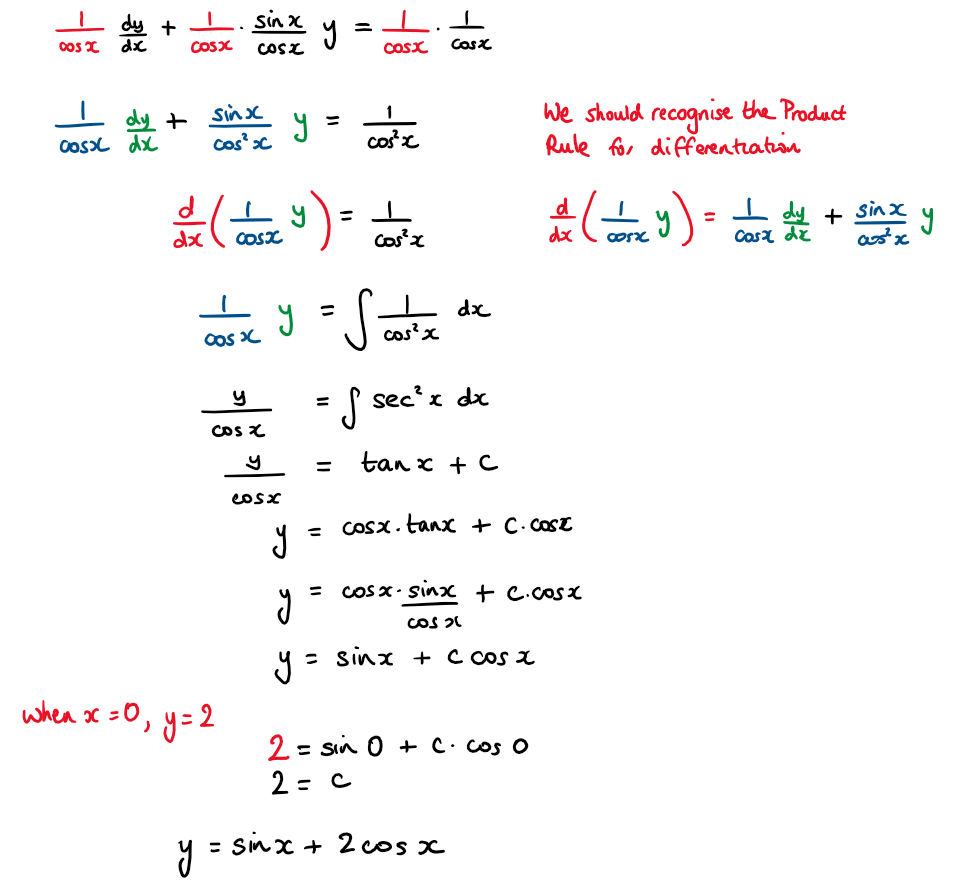 1/cosx dy/dx + 1/cosx · sinx/cosx y = 1/cosx · 1/cosx
1/cosx dy/dx + sinx/cos²x y = 1/cos²x
We should recognise the Product
Rule for differentiation
d/dx (1/cosx y) = 1/cos²x
d/dx (1/cosx y) = 1/cosx dy/dx + sinx/cos²x y
1/cosx y = ∫ 1/cos²x dx
y/cosx = ∫ sec²x dx
y/cosx = tanx + C
y = cosx · tanx + C · cosx
y = cosx · sinx/cosx + C · cosx
y = sinx + C cosx
when x = 0, y = 2
2 = sin 0 + C · cos 0
2 = C
y = sinx + 2cosx